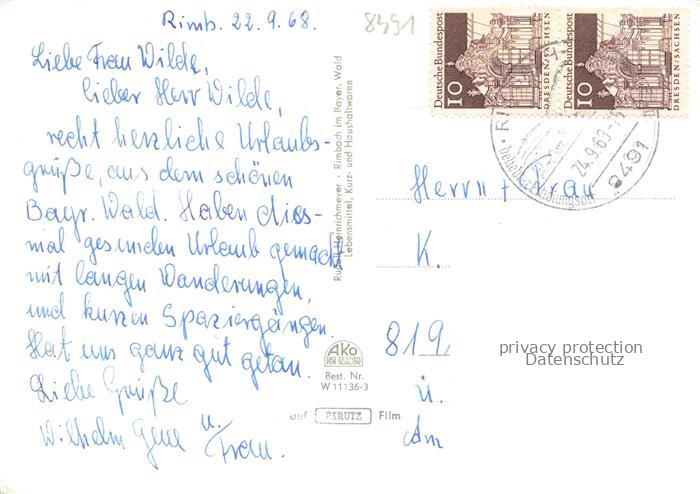 Rimb. 22.9.68.
8491
Liebe Frau Wilde,
lieber Herr Wilde,
recht herzliche Urlaubs-
grüße, aus dem schönen
Bayr. Wald. Haben dies-
mal gesunden Urlaub gemacht
mit langen Wanderungen,
und kurzen Spaziergängen.
Hat uns ganz gut getan.
Liebe Grüße
Wilhelm u.
Frau.
Heinrichmeyer · Rimbach im Bayer. Wald
Lebensmittel, Kurz- und Haushaltwaren
AKO
Best. Nr.
W 11136-3
auf PERUTZ Film
Deutsche Bundespost
10
DRESDEN/SACHSEN
Deutsche Bundespost
10
DRESDEN/SACHSEN
24.9.69
8491
Herrn + Frau
K.
819
ü.
Am
privacy protection
Datenschutz